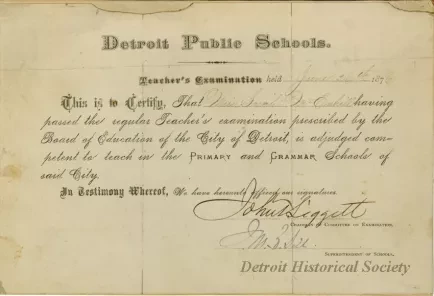 Detroit Public Schools.
Teacher's Examination held June 187
This is to Certify, That having
passed the regular Teacher's examination prescribed by the
Board of Education of the City of Detroit, is adjudged com-
petent to teach in the PRIMARY and GRAMMAR Schools of
said City.
In Testimony Whereof, We have hereunto affixed our signatures.
John Liggett
CHAIRMAN OF COMMITTEE ON EXAMINATION.
SUPERINTENDENT OF SCHOOLS.
Detroit Historical Society